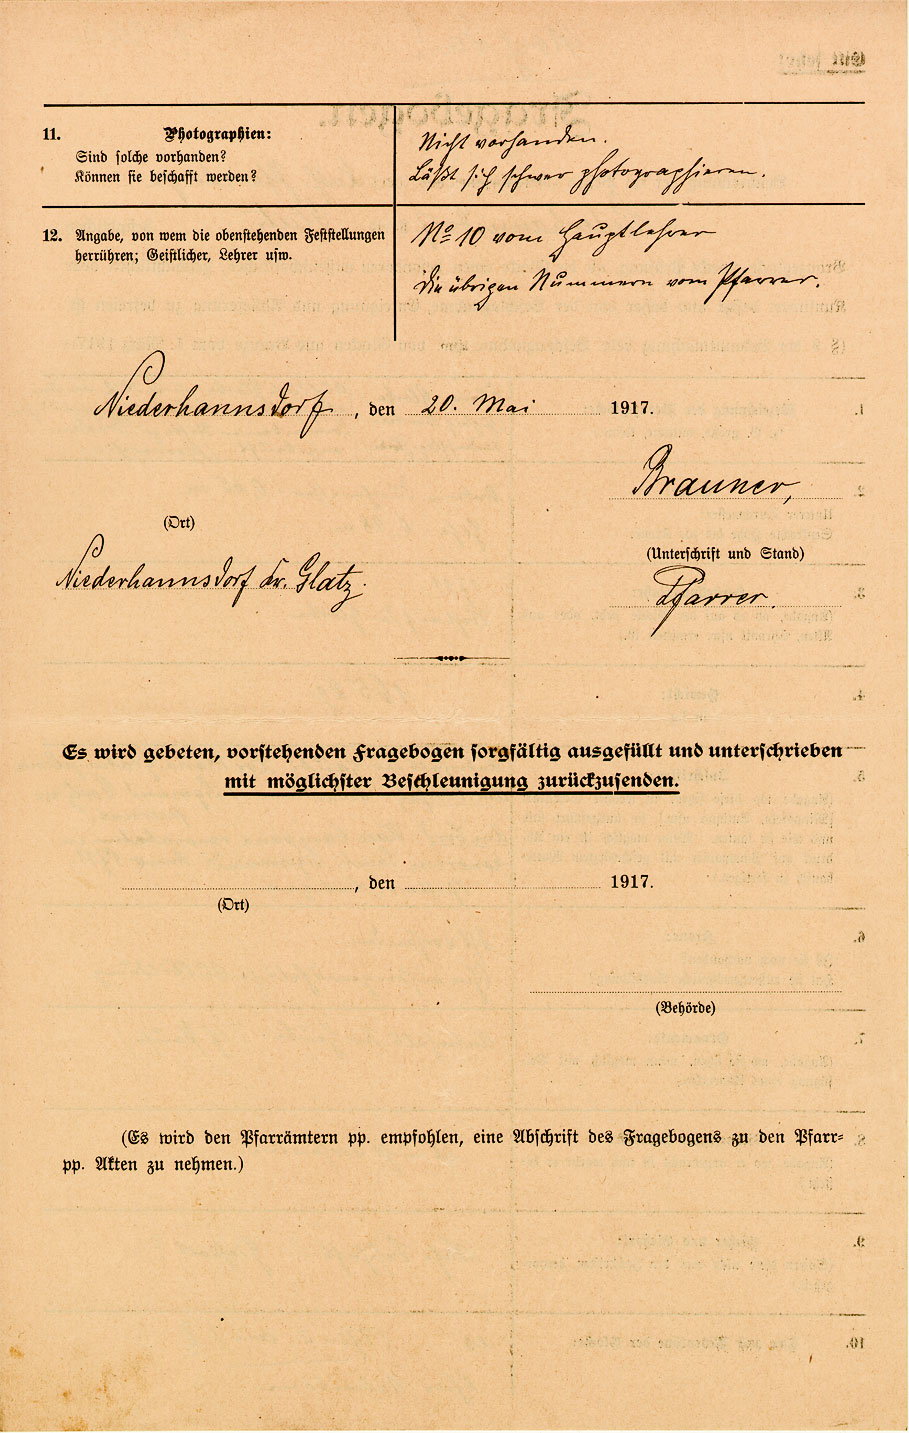 11. Photographien:
Sind solche vorhanden?
Können sie beschafft werden?
Nicht vorhanden.
Läßt sich schwer photographieren.
12. Angabe, von wem die obenstehenden Feststellungen
herrühren; Geistlicher, Lehrer usw.
No 10 vom Hauptlehrer
Die übrigen Nummern vom Pfarrer.
Niederhannsdorf, den 20. Mai 1917.
Brauner,
(Ort)
(Unterschrift und Stand)
Niederhannsdorf Kr. Glatz.
Pfarrer.
Es wird gebeten, vorstehenden Fragebogen sorgfältig ausgefüllt und unterschrieben
mit möglichster Beschleunigung zurückzusenden.
, den 1917.
(Ort)
(Behörde)
(Es wird den Pfarrämtern pp. empfohlen, eine Abschrift des Fragebogens zu den Pfarr=
pp. Akten zu nehmen.)